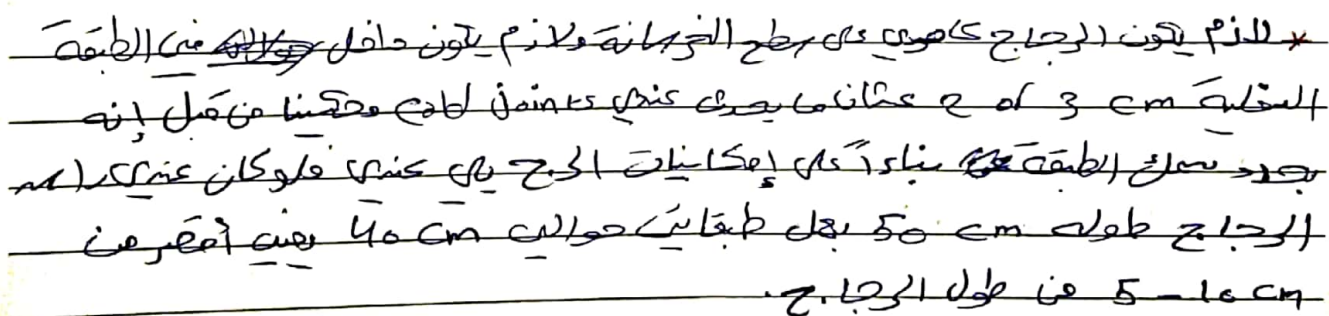 * لازم يكون الرجاج عامودي على سطح الخرسانة ولازم يكون داخل في الطبقة
السفلية 3 cm او 2 عشان ما يصير عندي cold joints وحكينا من قبل إنه
بحدد سمك الطبقة بناءً على إمكانيات الرج يلي عندي فلو كان عندي راس
الرجاج طوله 50 cm بعمل طبقات حوالي 40 cm يعني أقصر من
5 - 10 cm من طول الرجاج.